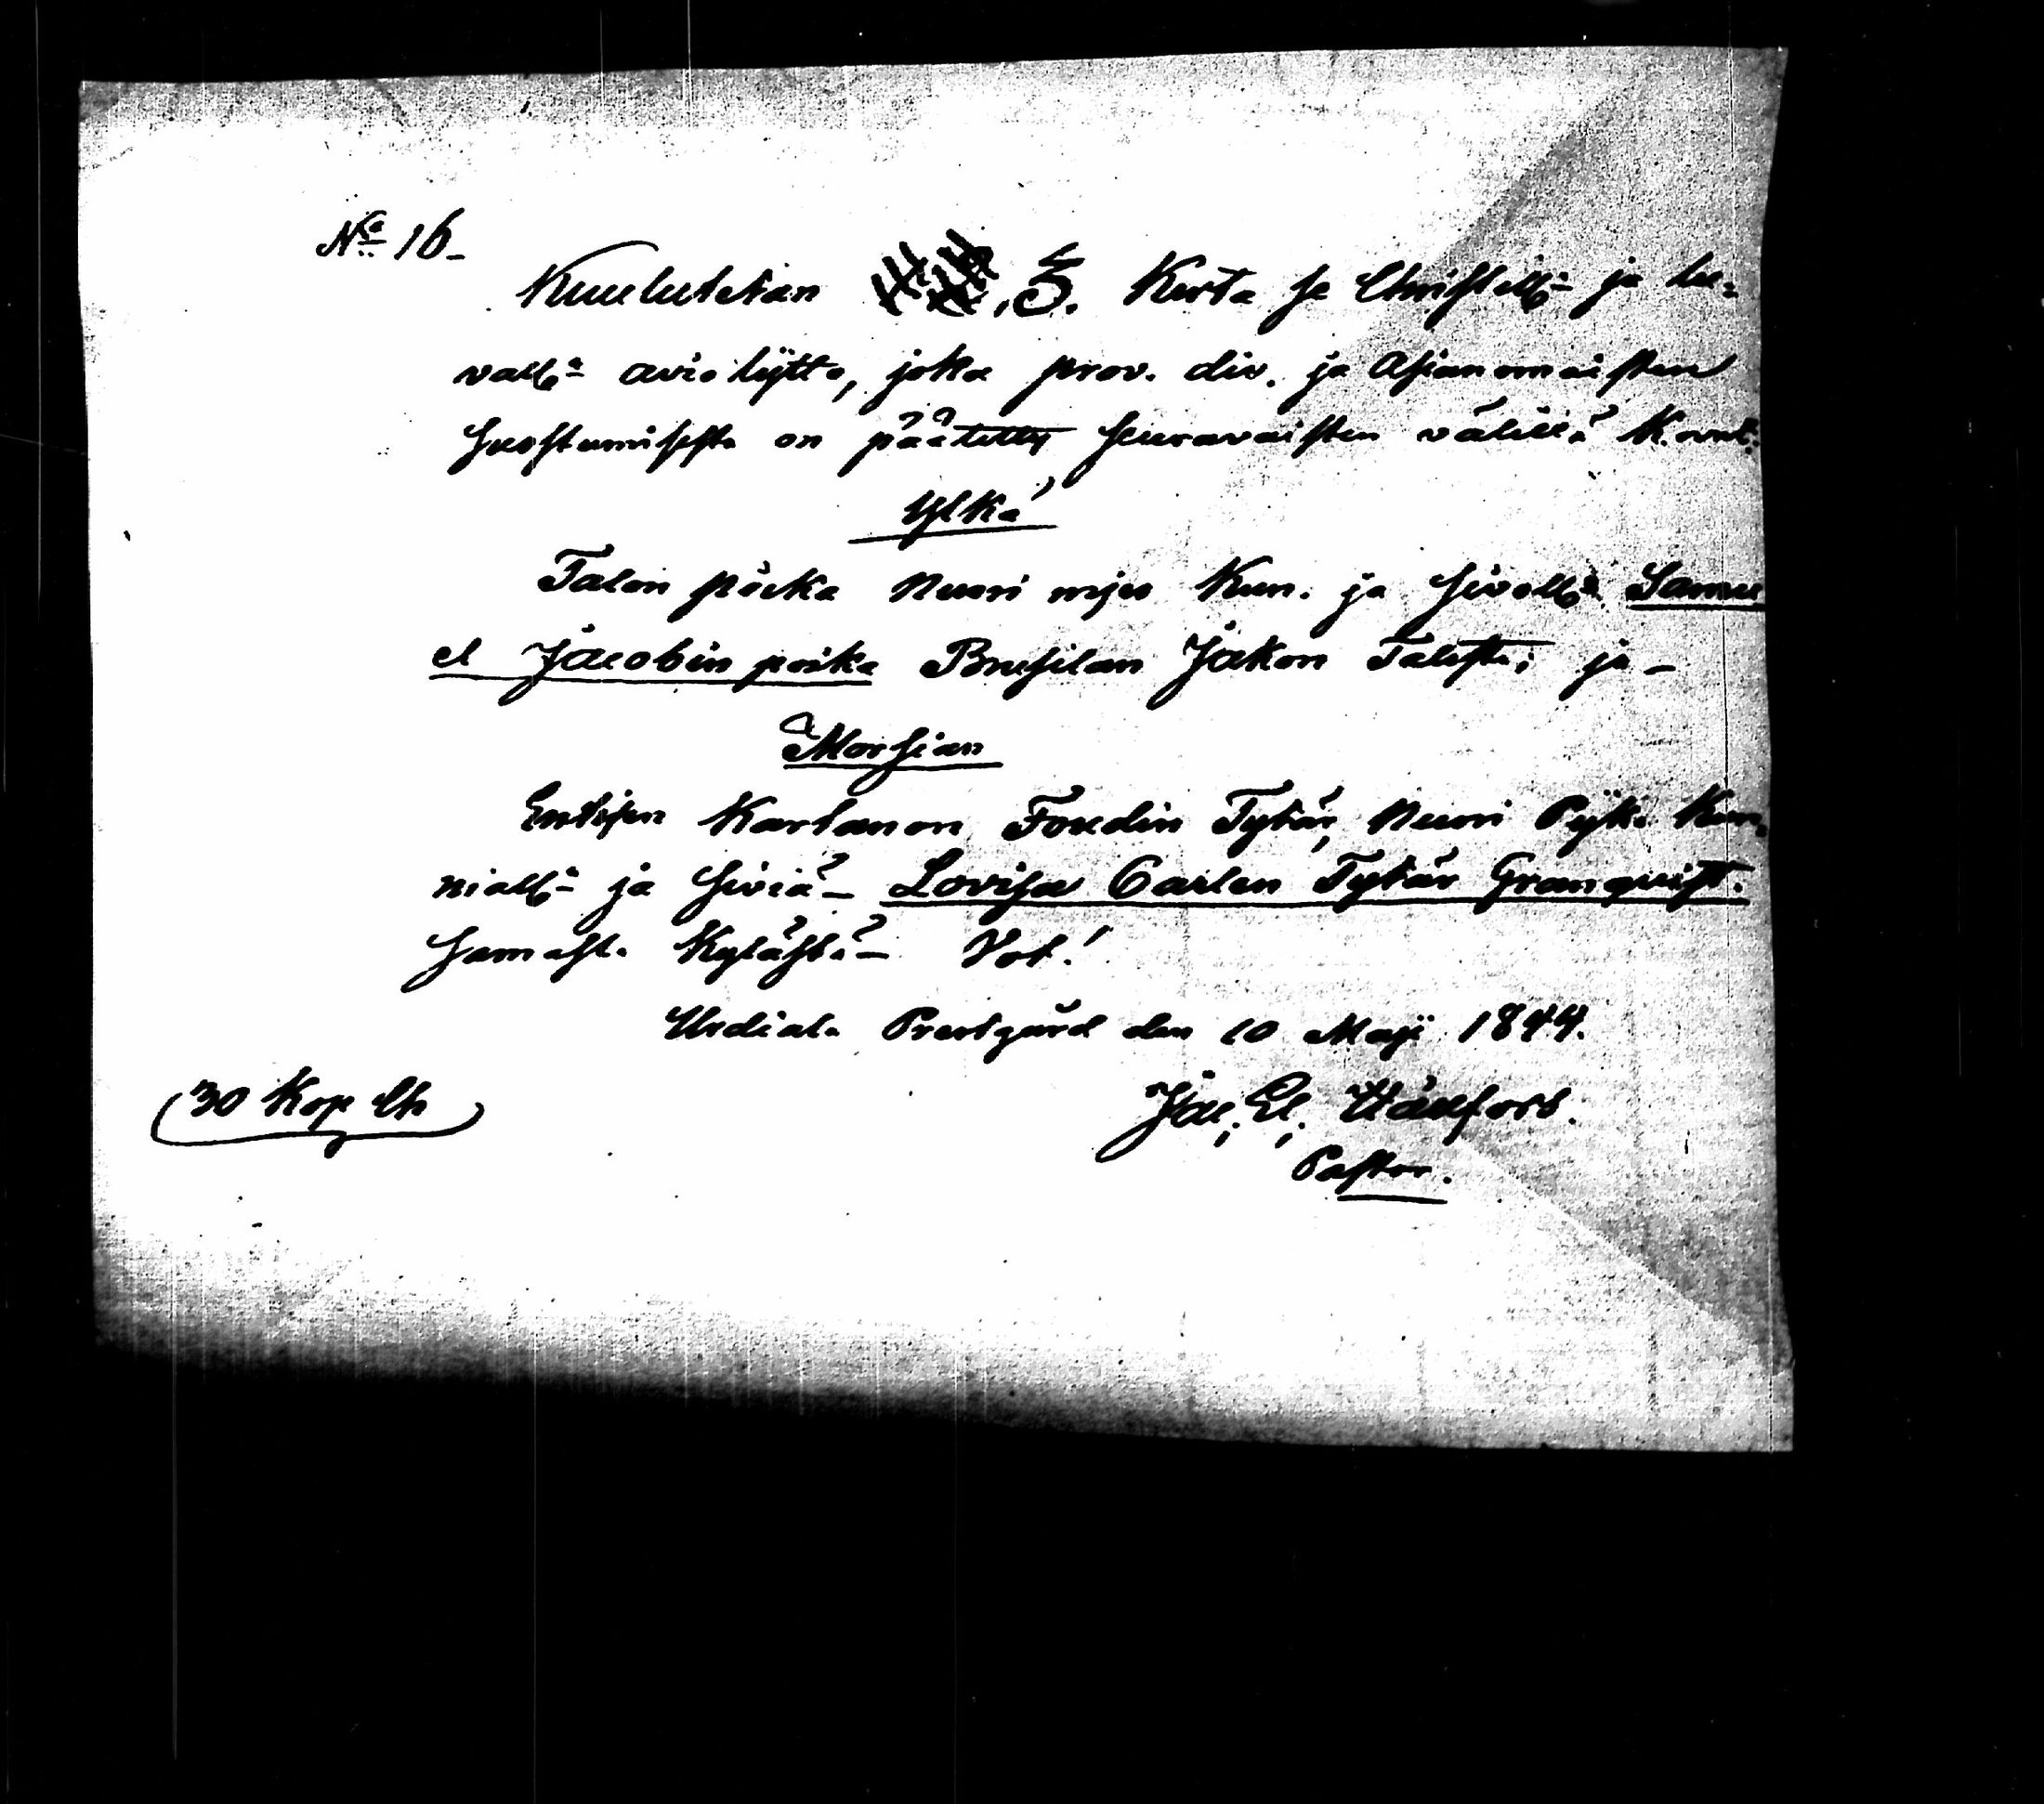 No 16
Kuulutetan 3. Kerta se Christell:n ja lu-
vall:n aviokÿtto, joka prov. div. ja Asianomaisten
suostumisesta on päätetty seuravaisten välillä
Ylkä
Talon poika Nuori mjes Kun. ja sivoll:n Samu
el Jacobin poika Jakon Talosta; ja -
Morsian
Entisen Kartanon Foudin Tytär, Nuori Pijka Kun-
niall:n ja siviä - Lovisa Carlen Tytär Granqvist.
samasta Kylästä - Vot!
Urdiala Prestgård den 10 Maji 1844.
30 Kop
Jac. El.
Pastor.